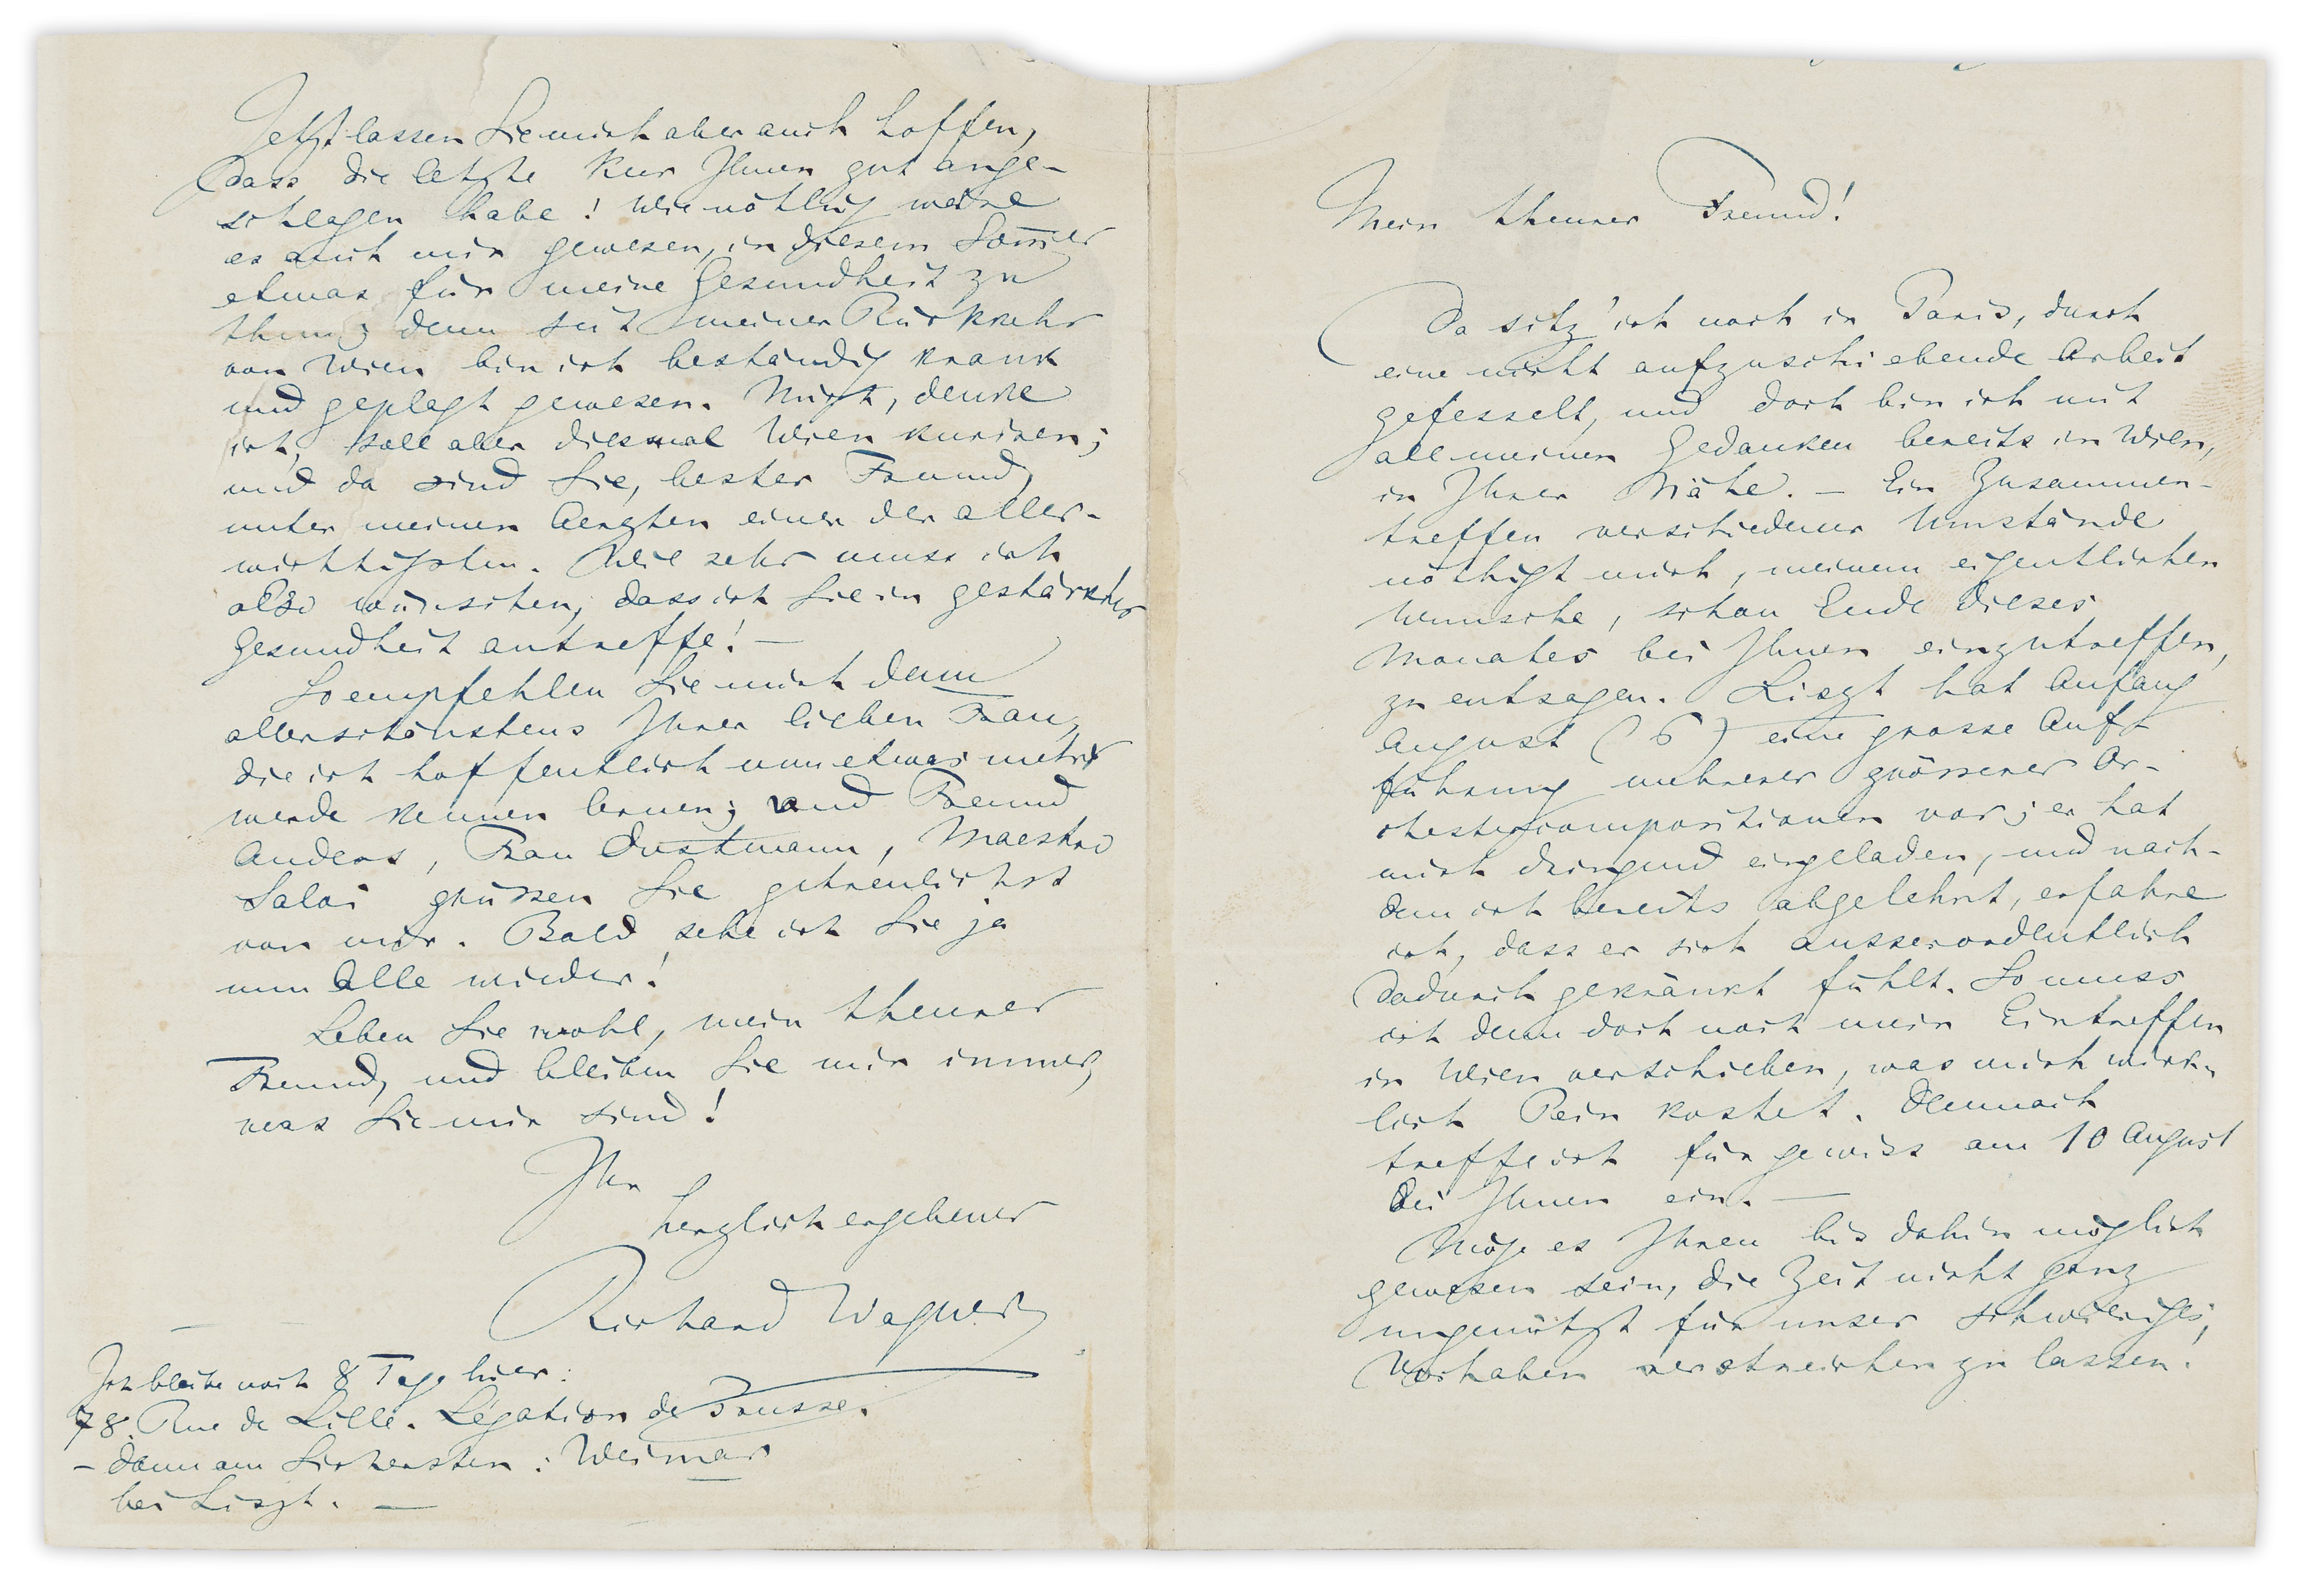 Mein theurer Freund!
Da sitz' ich noch in Paris, durch
eine nicht aufzuschiebende Arbeit
gefesselt, und doch bin ich mit
all meinen Gedanken bereits in Wien,
in Ihrer Nähe. — Ein Zusammen-
treffen verschiedener Umstände
nöthigt mich, meinem eigentlichen
Wunsche, schon Ende dieses
Monates bei Ihnen einzutreffen,
zu entsagen. Liszt hat Anfang
August (6) eine grosse Auf-
führung mehrerer grösserer Or-
chestercompositionen vor; er hat
mich dringend eingeladen, und nach-
dem ich bereits abgelehnt, erfahre
ich, dass er sich ausserordentlich
dadurch gekränkt fühlt. So muss
ich denn doch noch mein Eintreffen
in Wien verschieben, was mich wirk-
lich Pein kostet. Demnach
treffe ich für gewiss am 10 August
bei Ihnen ein. —
Möge es Ihnen bis dahin möglich
gewesen sein, die Zeit nicht ganz
ungenützt für unser schwieriges
Vorhaben verstreichen zu lassen!
Jetzt lassen Sie mich aber auch hoffen,
dass die letzte Kur Ihnen gut ange-
schlagen habe! Wie nöthig wäre
es auch mir gewesen, in diesem Som̄er
etwas für meine Gesundheit zu
thun; denn seit meiner Rückkehr
von Wien bin ich beständig krank
und geplagt gewesen. Mich, denke
ich, soll aber diesmal Wien kuriren;
und da sind Sie, bester Freund,
unter meinen Aerzten einer der aller-
wichtigsten. Wie sehr muss ich
also wünschen, dass ich Sie in gestärkter
Gesundheit antreffe! —
So empfehlen Sie mich denn
allerschönstens Ihrer lieben Frau,
die ich hoffentlich nun etwas mehr
werde kennen lernen; und Freund
Anders, Frau Dustmann, Maestro
Salvi grüssen Sie getreulichst
von mir. Bald sehe ich Sie ja
nun Alle wieder!
Leben Sie wohl, mein theurer
Freund, und bleiben Sie mir immer,
was Sie mir sind!
Ihr
herzlich ergebener
Richard Wagner
Ich bleibe noch 8 Tage hier:
78. Rue de Lille. Légation de Prusse.
– dann am Sichersten: Weimar
bei Liszt. —